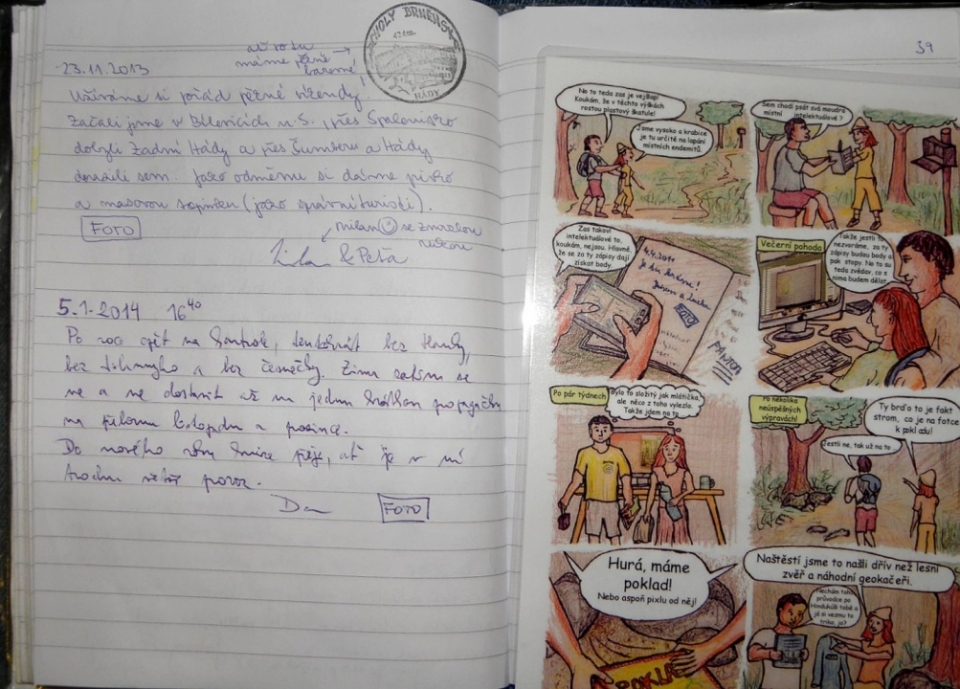 23.11.2013
ať roku
máme pěkně
barevné
Užíváme si pořád pěkné víkendy.
Začali jsme v Bílovicích n.S., přes
dobyli Zadní Hády a přes Šumberu a Hády
dorazili sem. Jako odměnu si dáme pivko
a masovou (jako správní turisti).
FOTO
se zmrzlou
& Peťa
5.1.2014 16⁴⁰
Po roce opět na kontrole, tentokrát bez Handy,
bez a bez
ne a ne dostavit až na jednu
na přelomu listopadu a prosince.
Do nového roku přeje, ať je v ní
trochu větší provoz.
Da
FOTO
39
No to teda zas je vejšlap!
Koukám, že v těchto výškách
rostou plastový škatule!
Jsme vysoko a krabice
je tu určitě na lapání
místních endemitů.
Sem chodí psát svá moudra
místní intelektuálové?
Zas takoví
intelektuálové to,
koukám, nejsou. Hlavně
že se za ty zápisy dají
získat body.
4.4.2011
Je tu krásně!
FOTO
Večerní pohoda
Takže jestli to
nezvoráme, za ty
zápisy budou body a
pak stopy. No to su
teda zvědav, co s
nima budem dělat.
Po pár týdnech
Bylo to složitý jak mlátička,
ale něco z toho vylezlo.
Takže jdem na to.
Po několika
neúspěšných
výpravách!
Ty brďo to je fakt
strom, co je na fotce
k pokladu!
Jestli ne, tak už na to
Hurá, máme
poklad!
Nebo aspoň pixlu od něj!
POKLAD
Naštěstí jsme to našli dřív než lesní
zvěř a náhodní geokačeři.
Nechám toho
průvodce po
Hindúkúši tobě a
já si vezmu to
triko, jo?